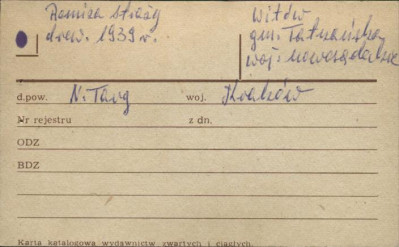 Remiza straży
drew. 1939 r.
Witów
gm. Tatrzańska
woj: nowosądeckie
d.pow. N. Targ woj. Kraków
Nr rejestru z dn.
ODZ
BDZ
Karta katalogowa wydawnictw zwartych i ciągłych.